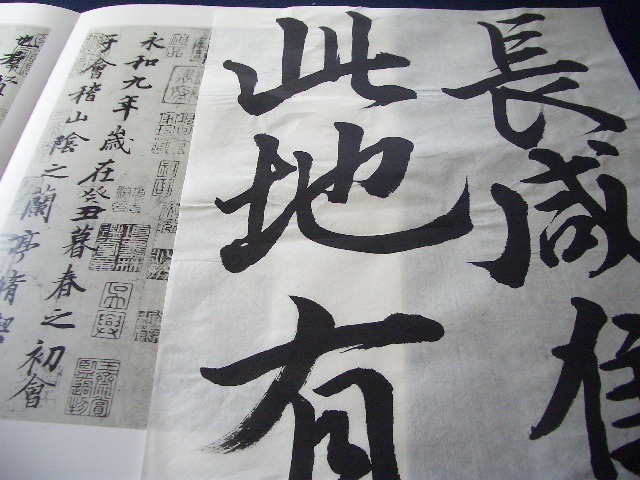 長咸集
此地有
永和九年歲在癸丑暮春之初會
于會稽山陰之蘭亭脩禊
也羣賢